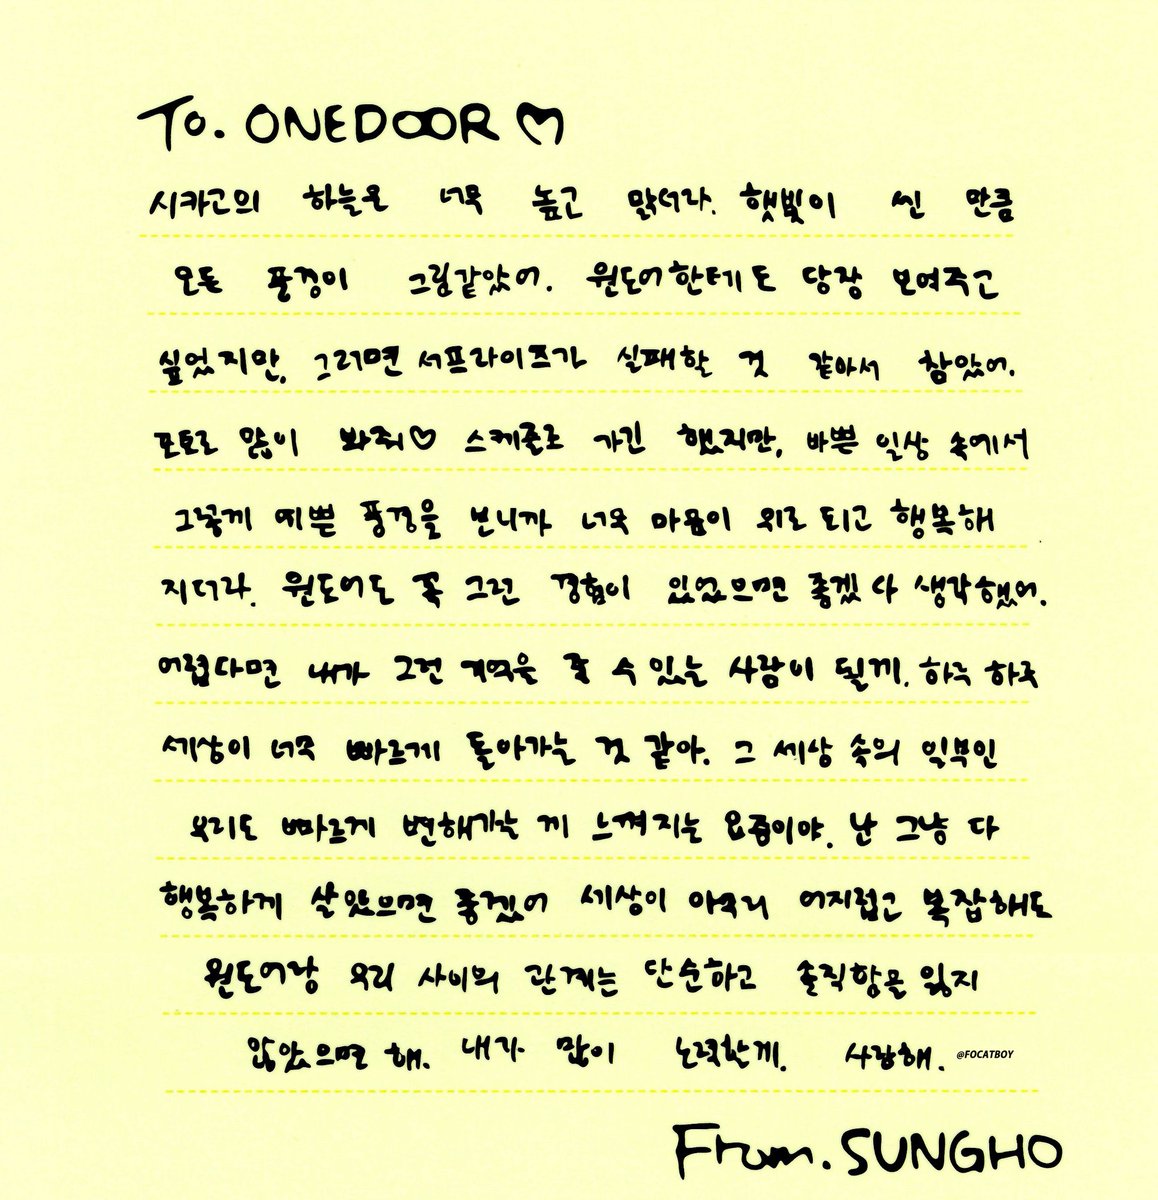 To. ONEDOOR ♡
시카고의 하늘은 너무 높고 맑더라. 햇빛이 씬 만큼
모든 풍경이 그림같았어. 원도어한테도 당장 보여주고
싶었지만, 그러면 서프라이즈가 실패할 것 같아서 참았어.
포토로 많이 봐줘♡ 스케줄로 가긴 했지만, 바쁜 일상 속에서
그렇게 예쁜 풍경을 보니까 너무 마음이 위로 되고 행복해
지더라. 원도어도 꼭 그런 경험이 있었으면 좋겠다 생각했어.
어렵다면 내가 그런 기억을 줄 수 있는 사람이 될게. 하루 하루
세상이 너무 빠르게 돌아가는 것 같아. 그 세상 속의 일부인
우리도 빠르게 변해가는 게 느껴지는 요즘이야. 난 그냥 다
행복하게 살았으면 좋겠어 세상이 아무리 어지럽고 복잡해도
원도어랑 우리 사이의 관계는 단순하고 솔직함을 잃지
않았으면 해. 내가 많이 노력할게. 사랑해. @FOCATBOY
From. SUNGHO